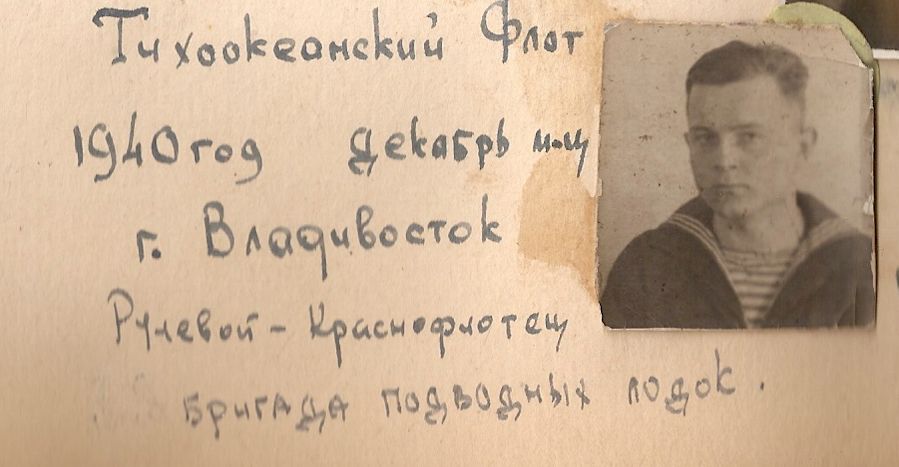 Тихоокеанский Флот
1940 год декабрь м-ц
г. Владивосток
Рулевой - Краснофлотец
бригада подводных лодок.